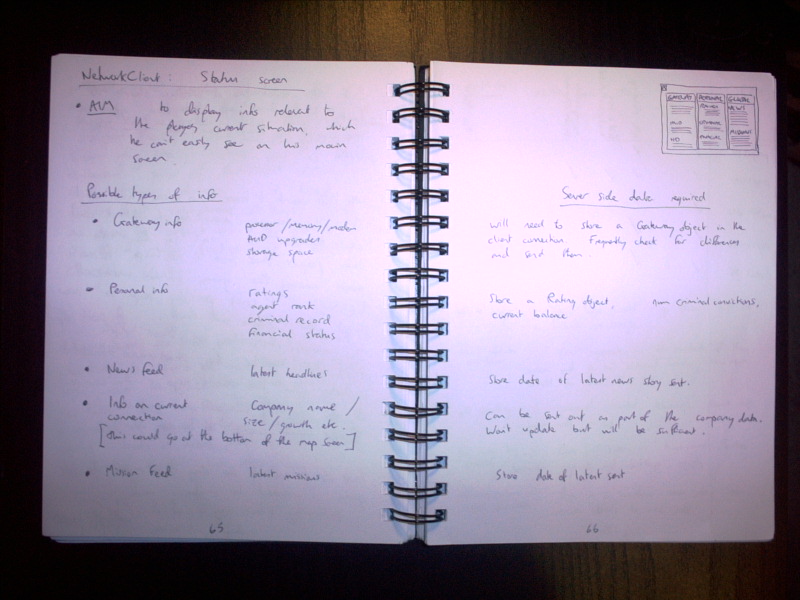 NetworkClient: Status screen
• AIM to display info relevant to
the players current situation, which
he can't easily see on his main
screen.
Possible types of info
• Gateway info processor/memory/modem
HUD upgrades
storage space
• Personal info ratings
agent rank
criminal record
financial status
• News Feed latest headlines
• Info on current Company name /
connection size/growth etc.
[this could go at the bottom of the map screen]
• Mission Feed latest missions
65
GATEWAY PERSONAL GLOBAL
NEWS
HUD
CRIMINAL
MISSIONS
FINANCIAL
Server side data required
will need to store a Gateway object in the
client connection. Frequently check for differences
and send them.
Store a Rating object, num criminal convictions,
current balance
Store date of latest news story sent.
Can be sent out as part of the company data.
Wont update but will be sufficient.
Store date of latest sent
66